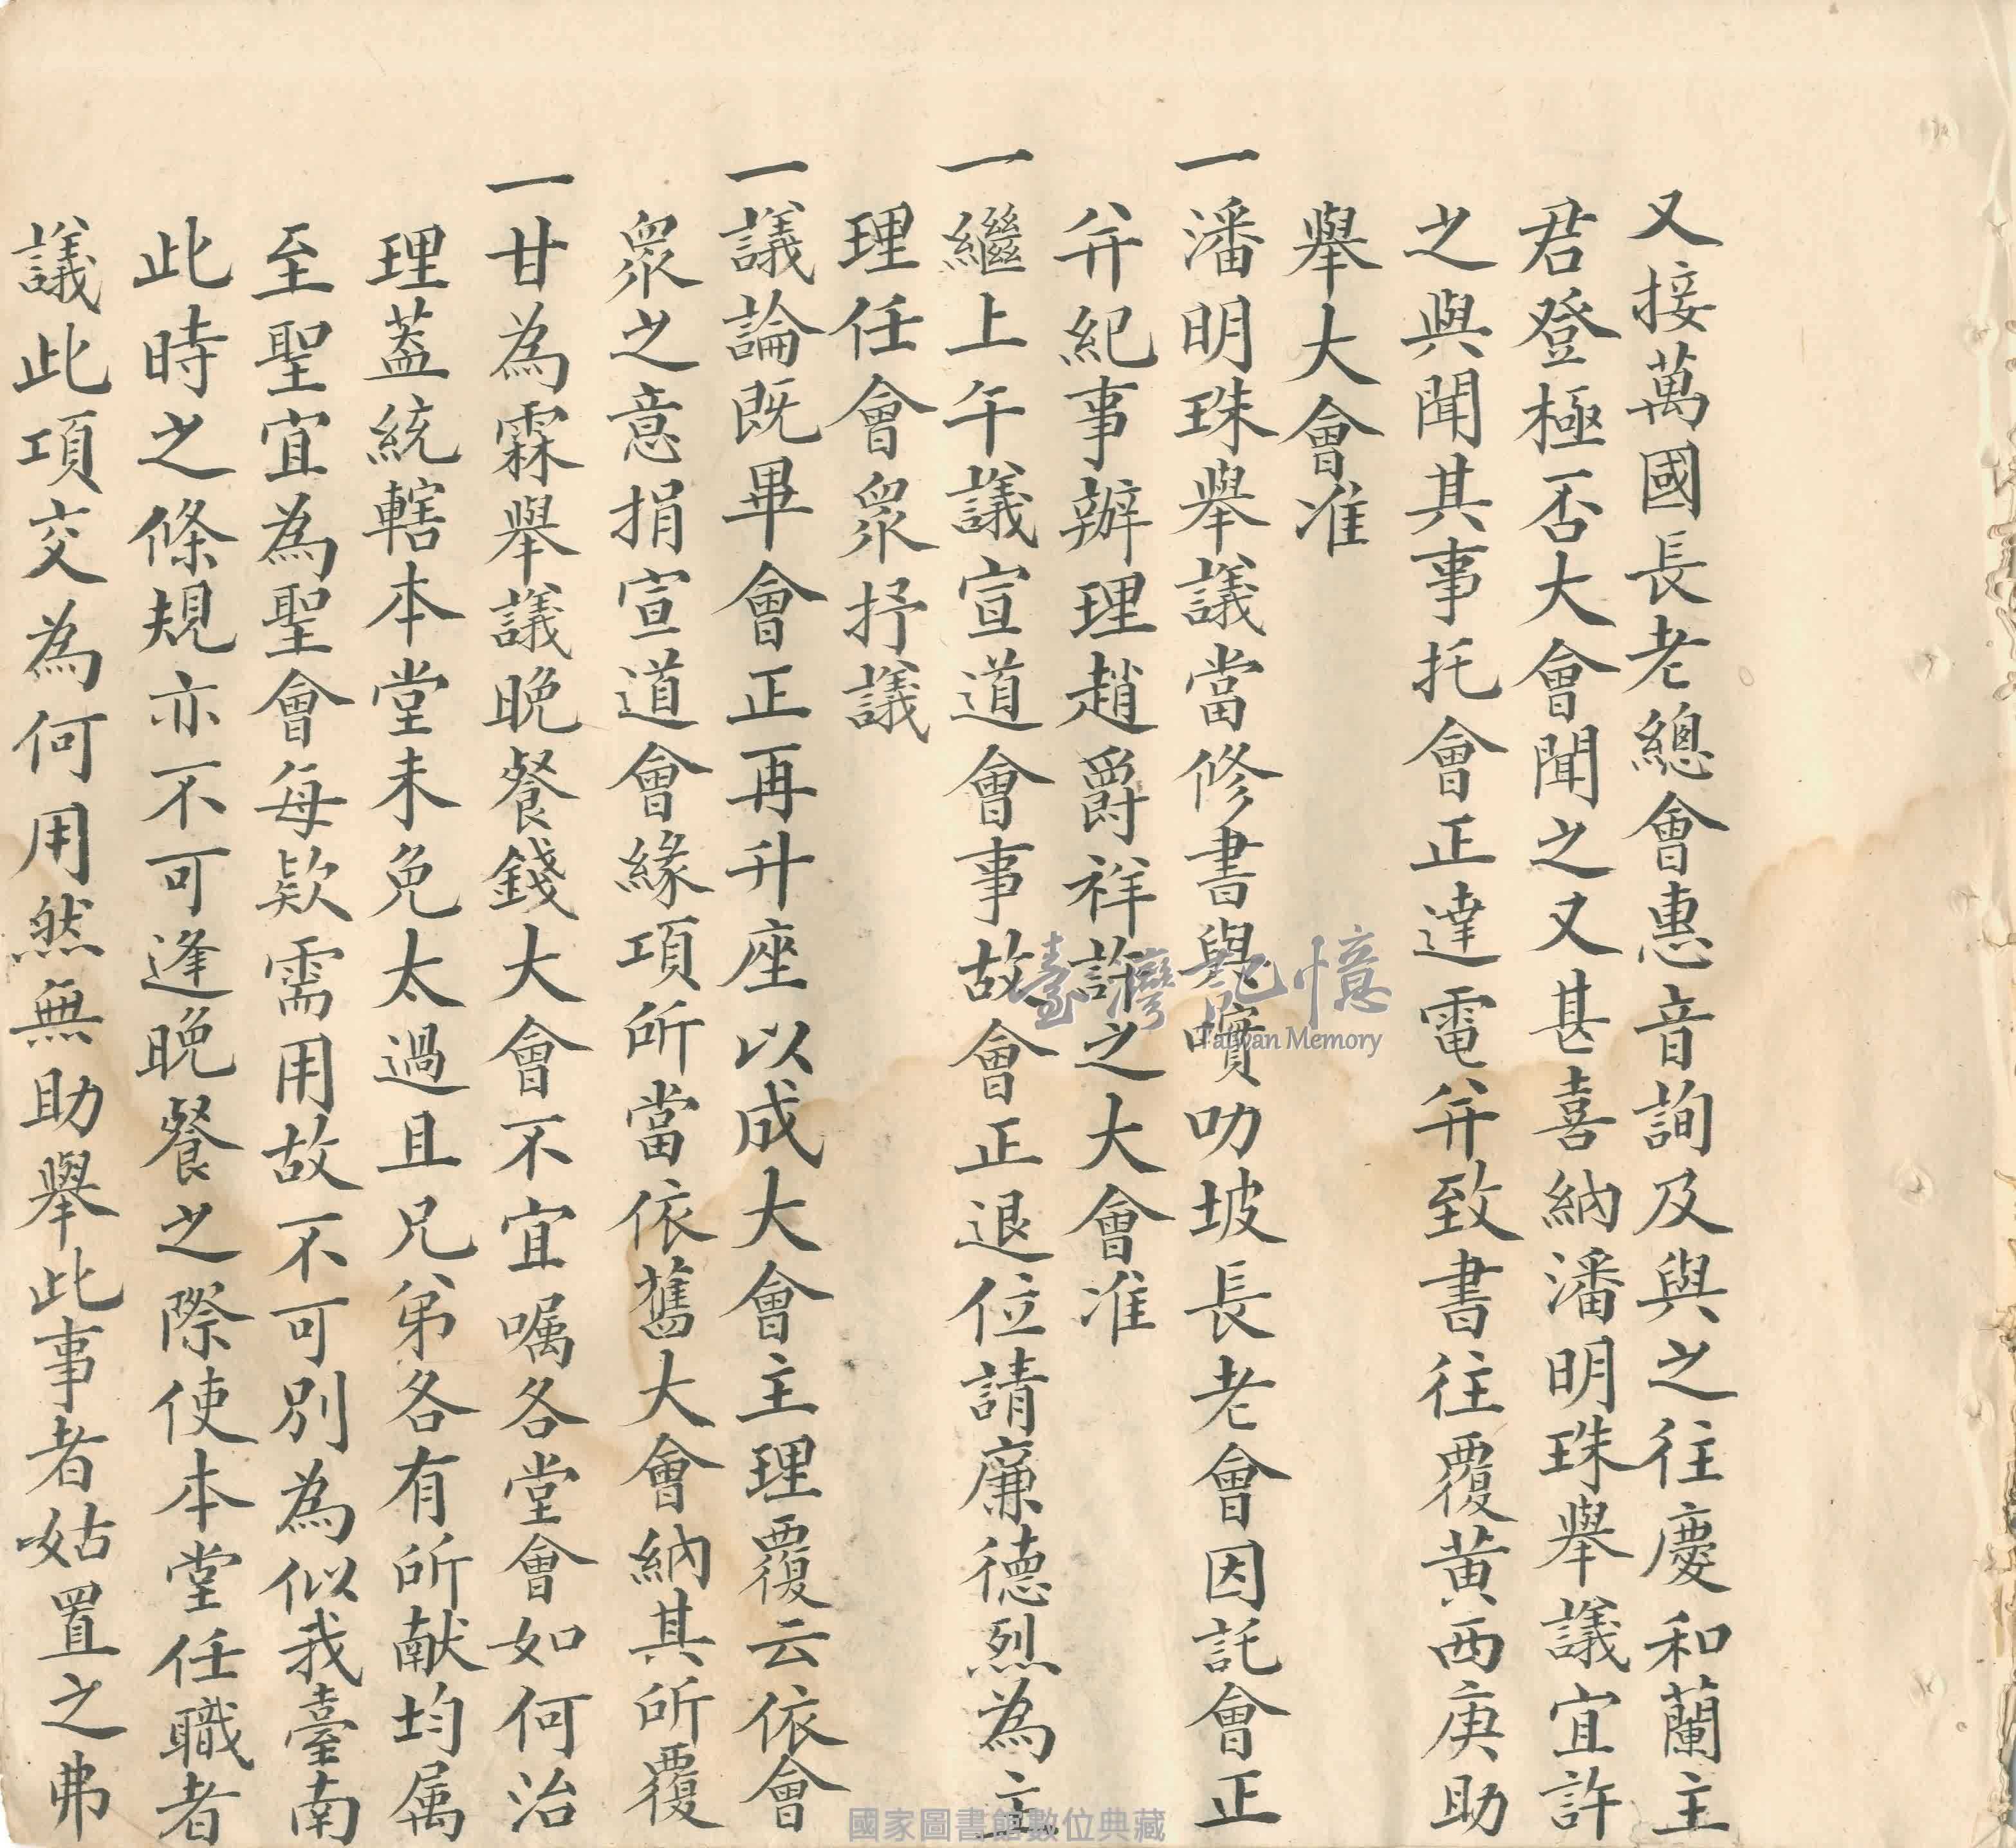 又接萬國長老總會惠音詢及與之往慶和蘭主
君登極否大會聞之又甚喜納潘明珠舉議宜許
之與聞其事托會正達電并致書往覆黄西庚助
舉大會准
一潘明珠舉議當修書與嘪叻坡長老會因託會正
并紀事辦理趙爵祥許之大會准
一繼上午議宣道會事故會正退位請廉德烈為主
理任會眾抒議
一議論既畢會正再升座以成大會主理覆云依會
眾之意捐宣道會緣項所當依舊大會納其所覆
一甘為霖舉議晚餐錢大會不宜嘱各堂會如何治
理蓋統轄本堂未免太過且兄弟各有所献均属
至聖宜為聖會每欵需用故不可別為似我臺南
此時之條規亦不可逢晚餐之際使本堂任職者
議此項交為何用然無助舉此事者姑置之弗
臺灣記憶
Taiwan Memory
國家圖書館數位典藏